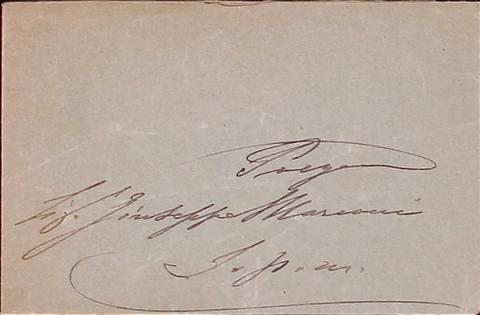 Pregeo
Sig. Giuseppe Marconi
S. p. m.